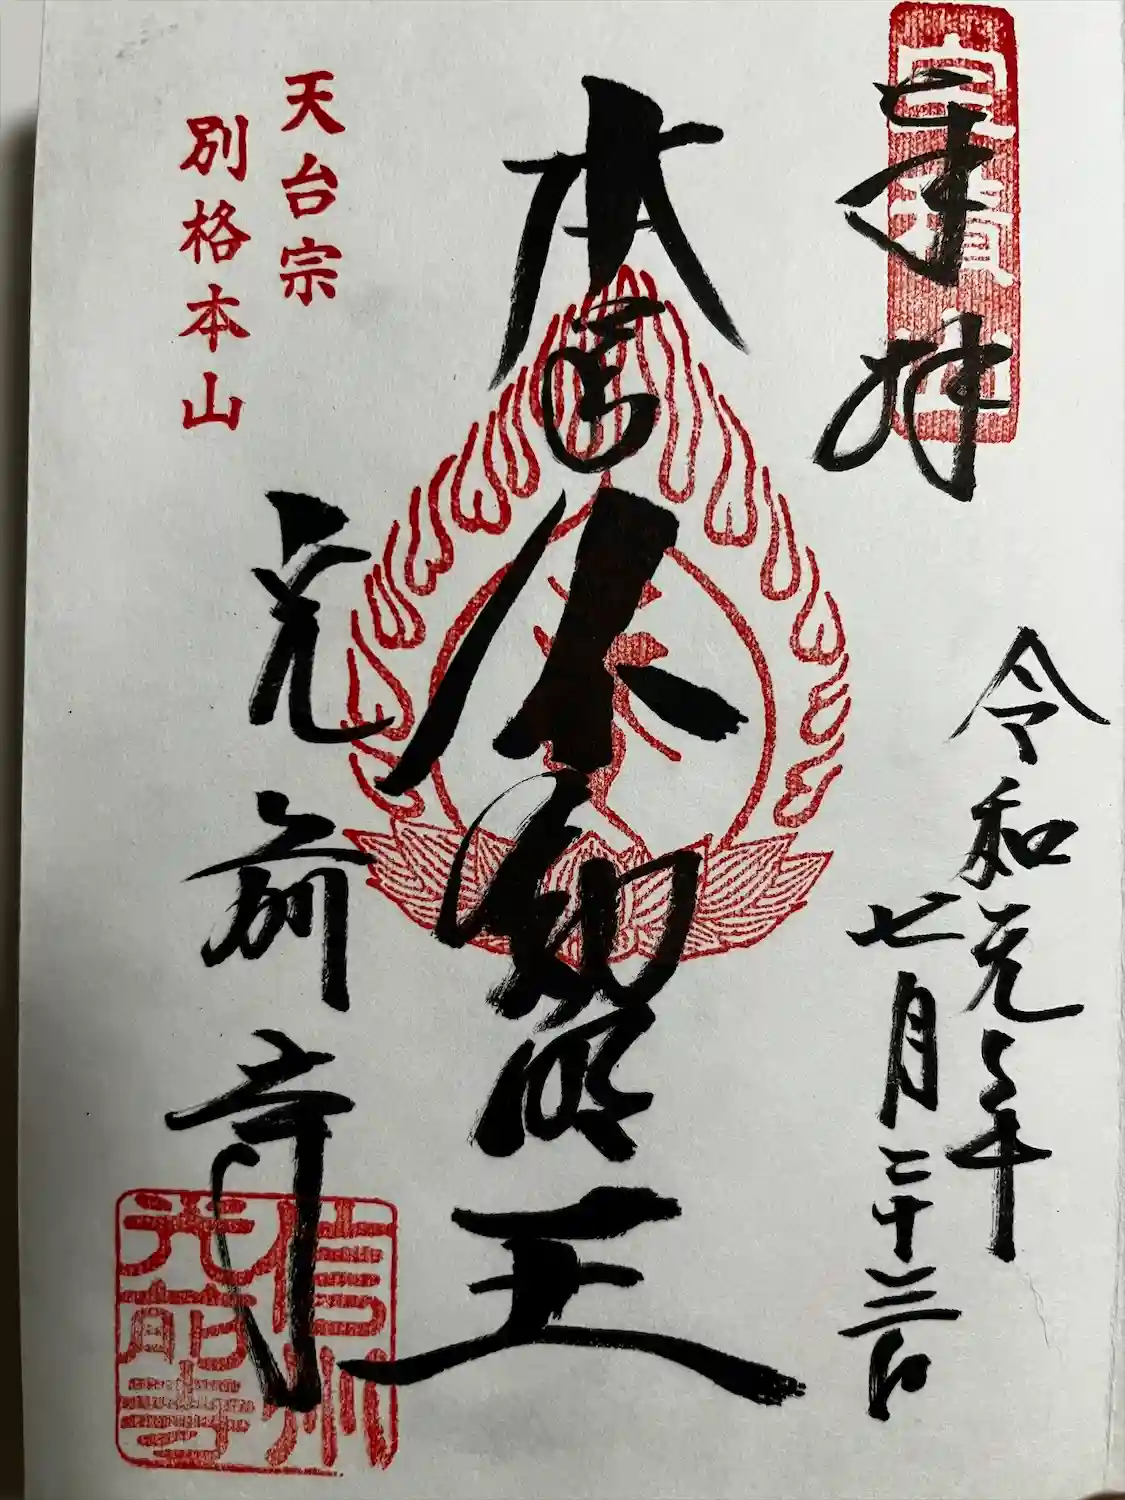 宝積山
奉拝
令和元年
七月二十三日
本尊
不動明王
天台宗
別格本山
光前寺
信州
光前寺